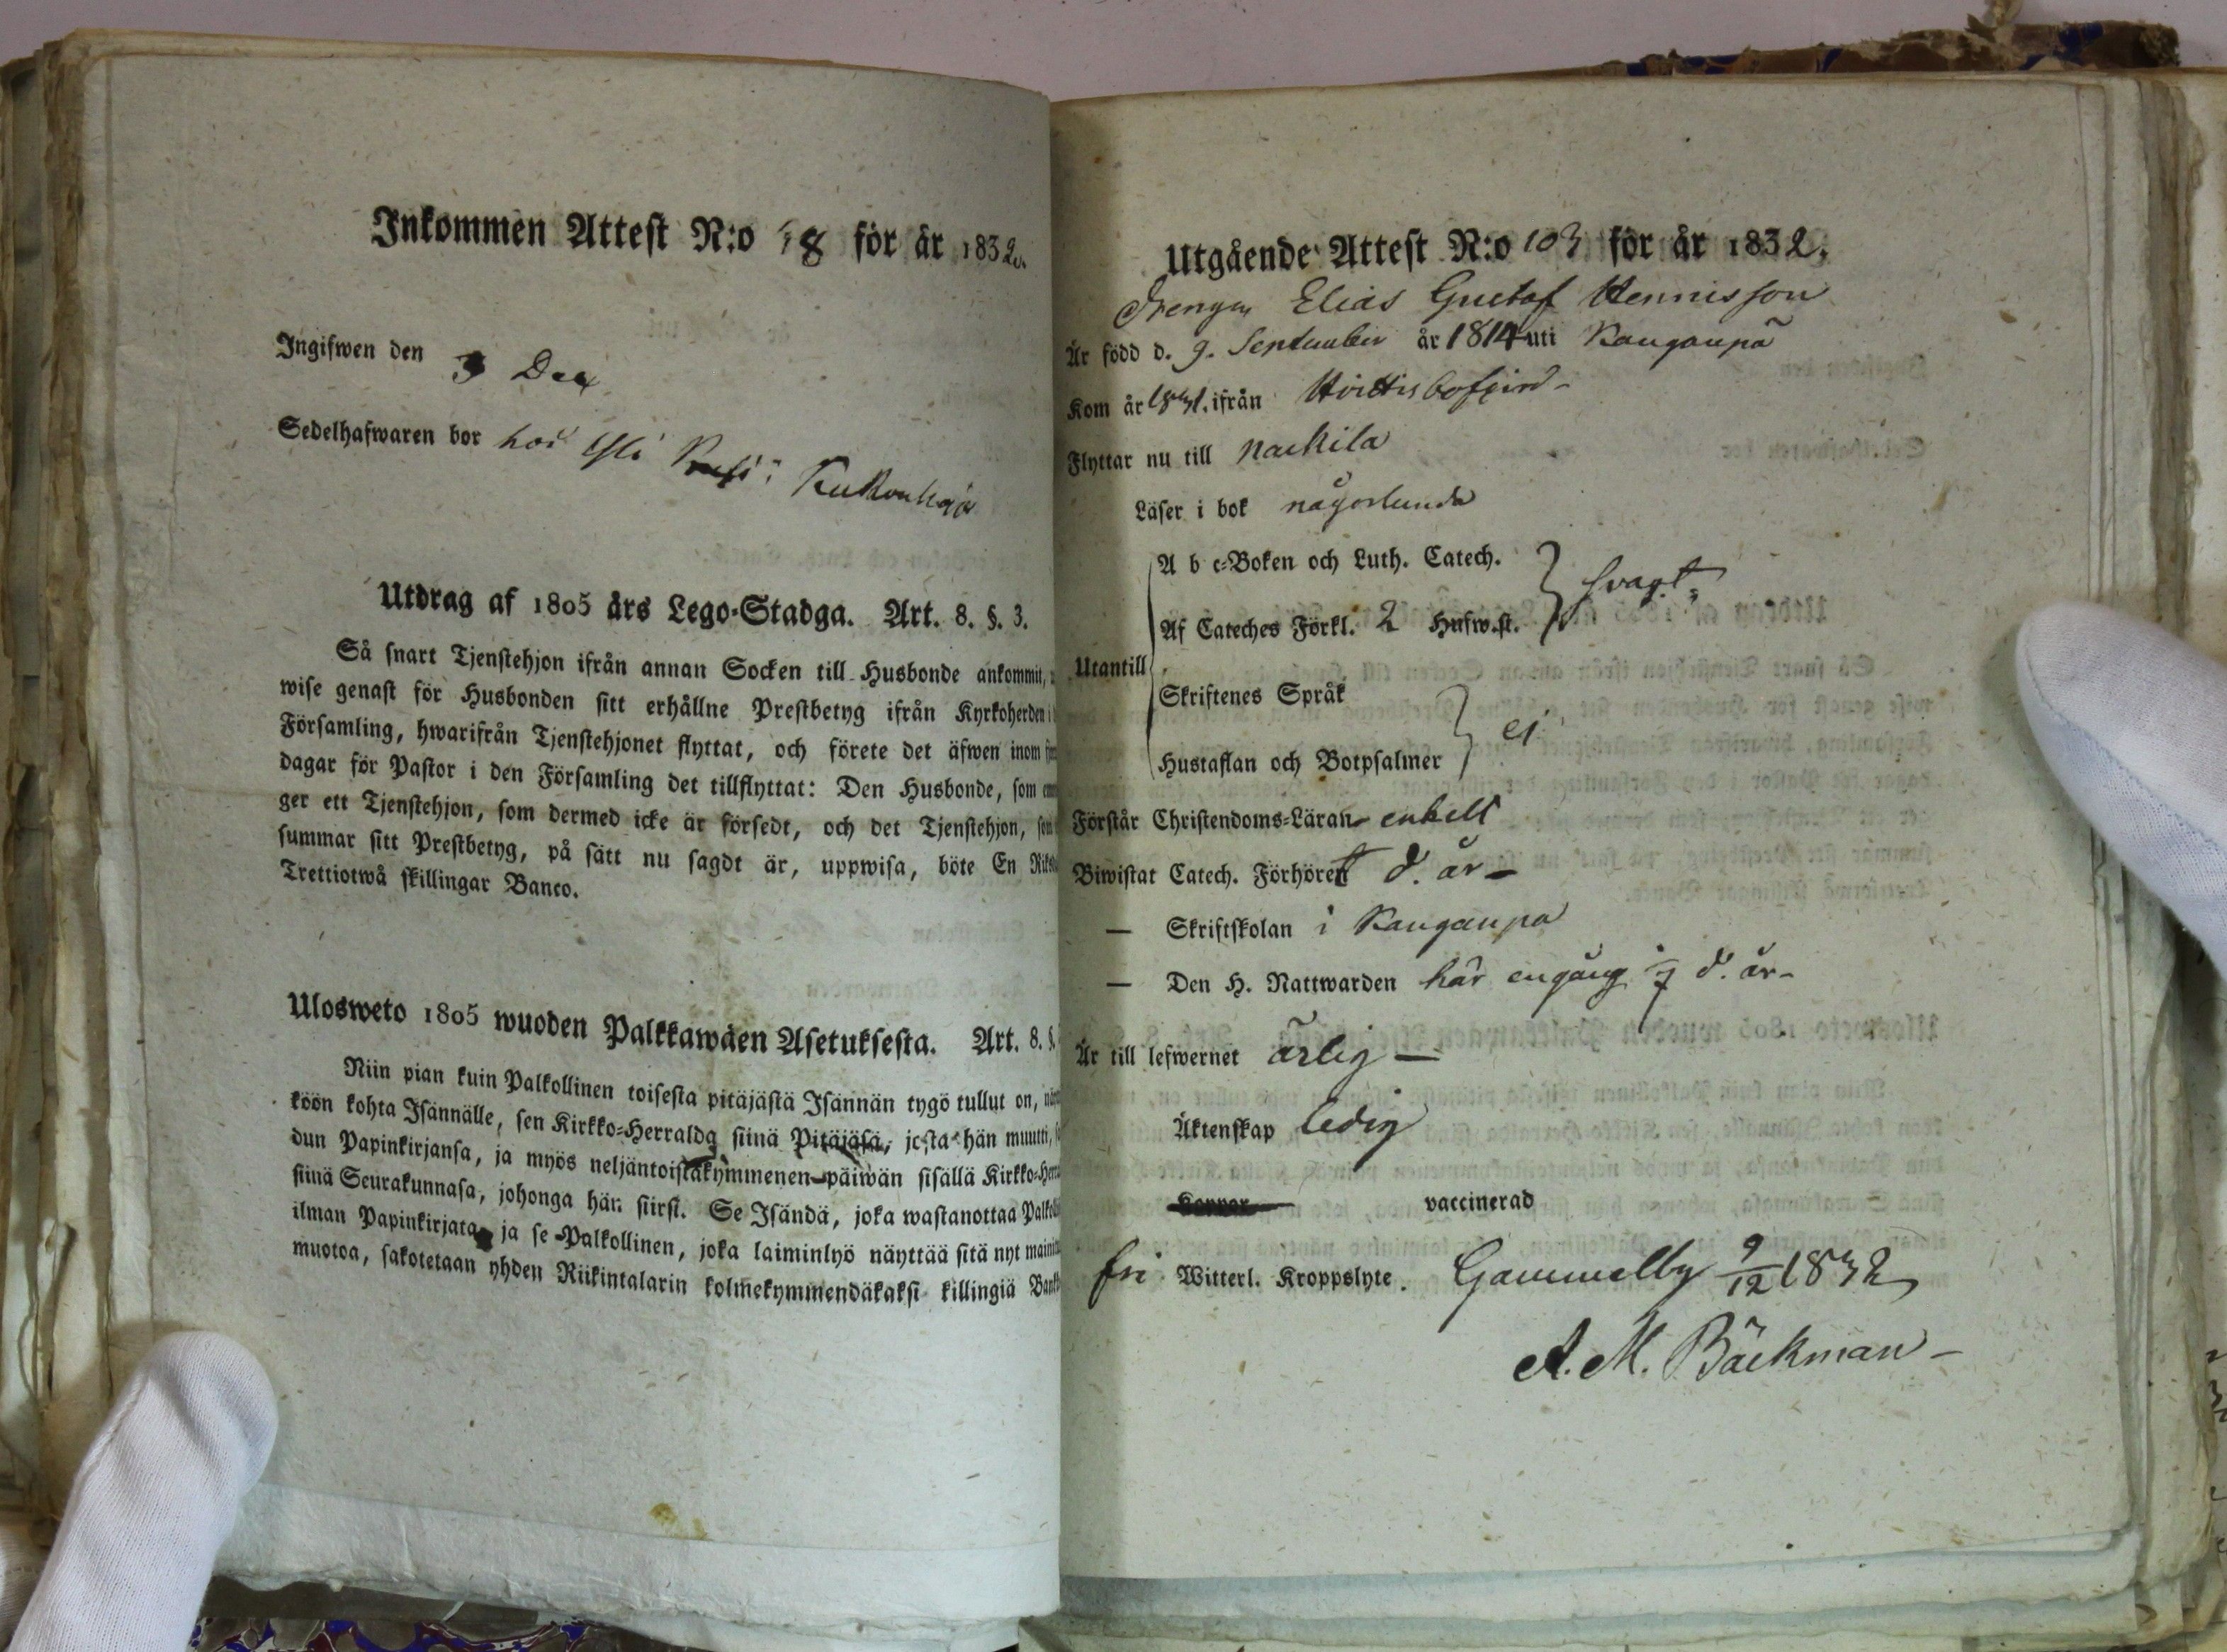 Inkommen Attest N:o 18 för år 1832.
Ingifwen den 3 Dec
Sedelhafwaren bor hos Yli
Utdrag af 1805 års Lego-Stadga. Art. 8. §. 3.
Så snart Tjenstehjon ifrån annan Socken till Husbonde ankommit,
wise genast för Husbonden sitt erhållne Prestbetyg ifrån Kyrkoherden i
Församling, hwarifrån Tjenstehjonet flyttat, och förete det äfwen inom
dagar för Pastor i den Församling det tillflyttat: Den Husbonde, som
ger ett Tjenstehjon, som dermed icke är försedt, och det Tjenstehjon,
summar sitt Prestbetyg, på sätt nu sagdt är, uppwisa, böte En
Trettiotwå skillingar Banco.
Ulosweto 1805 wuoden Palkkawäen Asetuksesta. Art. 8. §.
Niin pian kuin Palkollinen toisesta pitäjästä Isännän tygö tullut on,
köön kohta Isännälle, sen Kirkko-Herralda siinä Pitäjäsä, josta hän muutti,
dun Papinkirjansa, ja myös neljäntoistakymmenen päiwän sisällä
siinä Seurakunnasa, johonga hän siirst. Se Isändä, joka wastanottaa
ilman Papinkirjata ja se Palkollinen, joka laiminlyö näyttää sitä nyt
muotoa, sakotetaan yhden Riikintalarin kolmekymmendäkaksi killingiä
Utgående Attest N:o 103 för år 1832.
Drengen Elias Gustaf Hennisson
Är född d. 9. September år 1814 uti Kangaupä
Kom år 1831. ifrån Hvittisbofjerd -
Flyttar nu till Nackila
Läser i bok någorlunda
A b c-Boken och Luth. Catech.
Af Cateches Förkl. 2 Hufw.st. } svagt
Utantill
Skriftenes Språk
Hustaflan och Botpsalmer } ej
Förstår Christendoms-Läran enkelt
Biwistat Catech. Förhöret d. år -
— Skriftskolan i Kangaupä
— Den H. Nattwarden här engång i d. år -
Är till lefwernet ärlig —
Äktenskap ledig
Koppor vaccinerad
fri Witterl. Kroppslyte. Gammelby 9/12 1832
A. M. Bäckman -